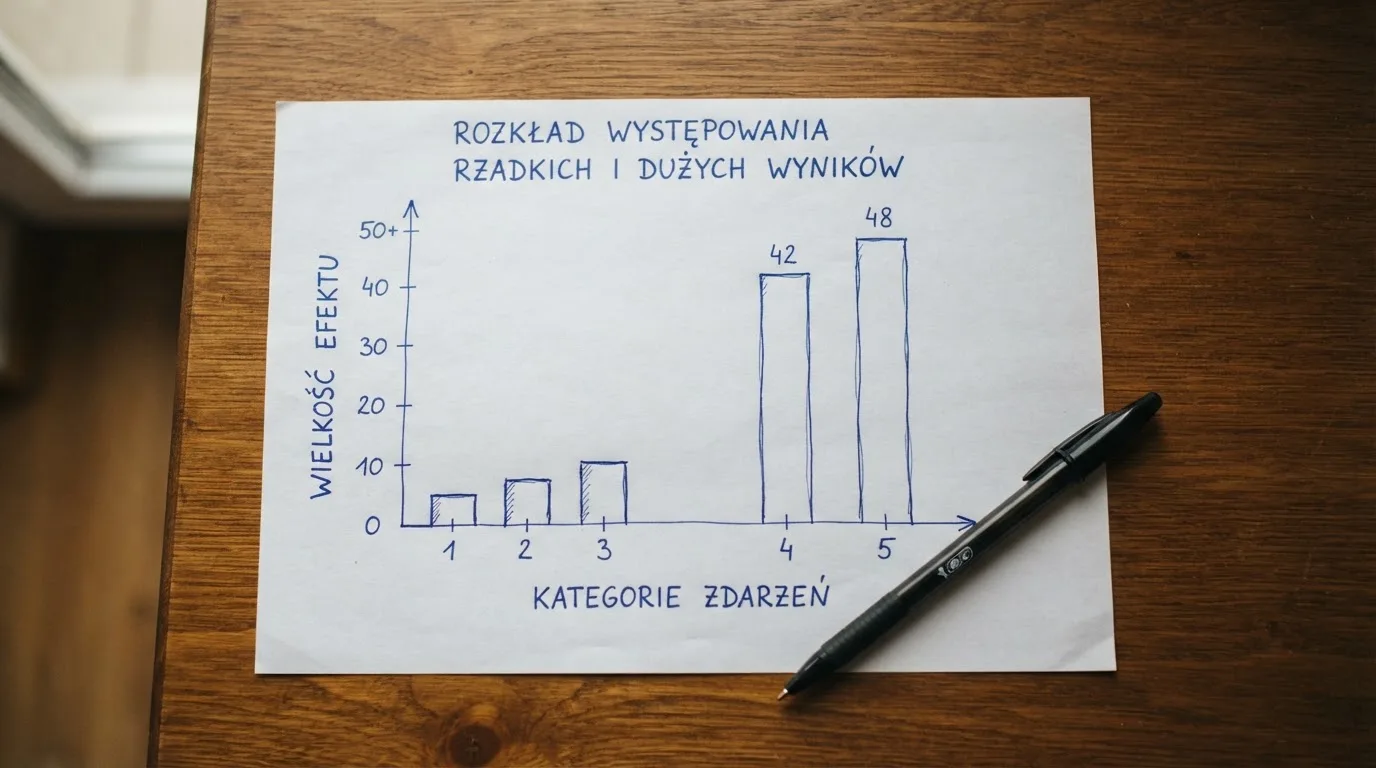 ROZKŁAD WYSTĘPOWANIA
RZADKICH I DUŻYCH WYNIKÓW
WIELKOŚĆ EFEKTU
50+
40
30
20
10
0
42
48
1 2 3 4 5
KATEGORIE ZDARZEŃ